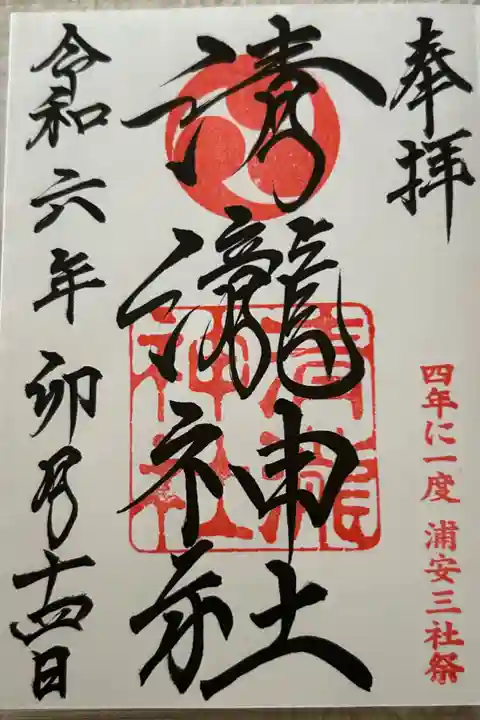 奉拝
四年に一度 浦安三社祭
清瀧神社
清瀧神社
令和六年卯月十四日